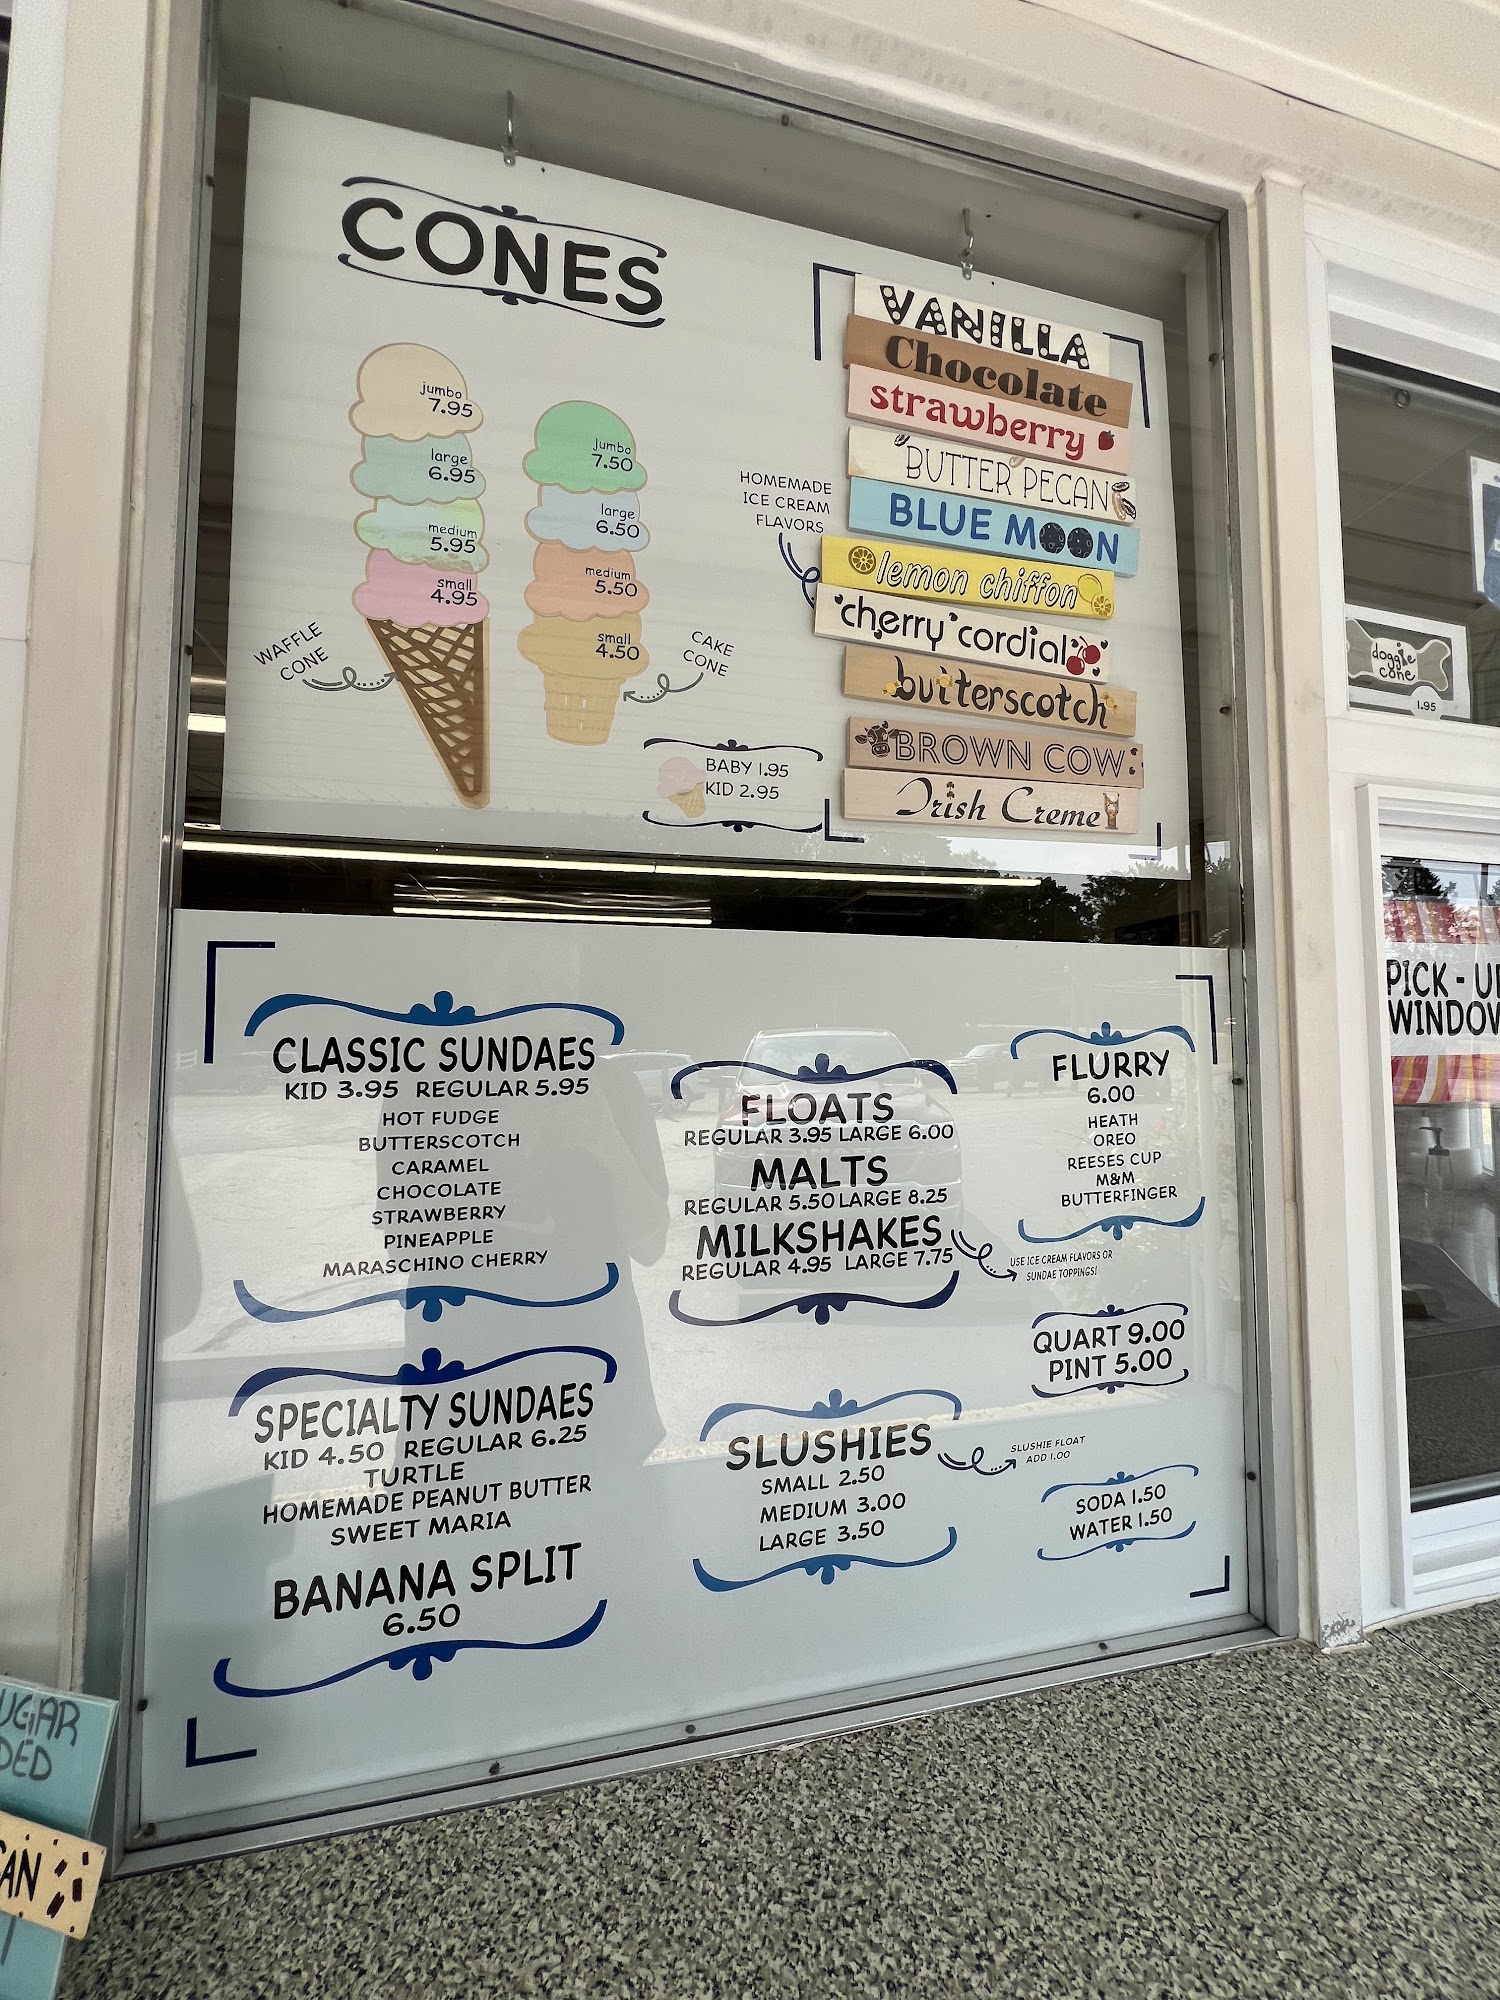 CONES
jumbo
7.95
large
6.95
medium
5.95
small
4.95
WAFFLE
CONE
jumbo
7.50
large
6.50
medium
5.50
small
4.50
CAKE
CONE
BABY 1.95
KID 2.95
HOMEMADE
ICE CREAM
FLAVORS
VANILLA
Chocolate
strawberry
BUTTER PECAN
BLUE MOON
lemon chiffon
cherry cordial
butterscotch
BROWN COW
Irish Creme
doggie
cone
1.95
PICK - U
WINDOW
CLASSIC SUNDAES
KID 3.95 REGULAR 5.95
HOT FUDGE
BUTTERSCOTCH
CARAMEL
CHOCOLATE
STRAWBERRY
PINEAPPLE
MARASCHINO CHERRY
SPECIALTY SUNDAES
KID 4.50 REGULAR 6.25
TURTLE
HOMEMADE PEANUT BUTTER
SWEET MARIA
BANANA SPLIT
6.50
FLOATS
REGULAR 3.95 LARGE 6.00
MALTS
REGULAR 5.50 LARGE 8.25
MILKSHAKES
REGULAR 4.95 LARGE 7.75
USE ICE CREAM FLAVORS OR
SUNDAE TOPPINGS!
FLURRY
6.00
HEATH
OREO
REESES CUP
M&M
BUTTERFINGER
QUART 9.00
PINT 5.00
SLUSHIES
SMALL 2.50
MEDIUM 3.00
LARGE 3.50
SLUSHIE FLOAT
ADD 1.00
SODA 1.50
WATER 1.50
UGAR
DED
AN